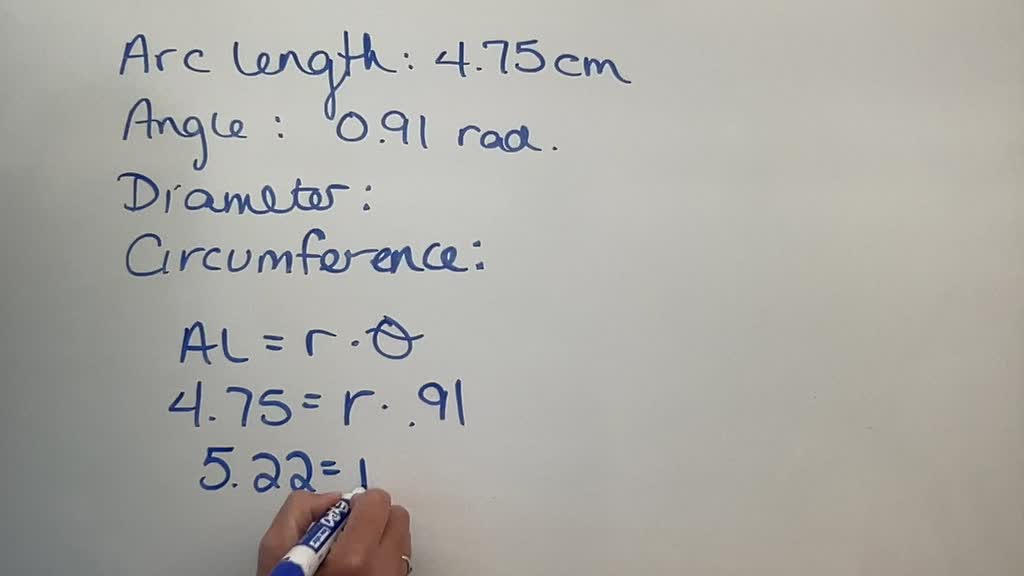 Arc length: 4.75cm
Angle: 0.91 rad.
Diameter:
Circumference:
AL = r · θ
4.75 = r · .91
5.22 =
EXPO